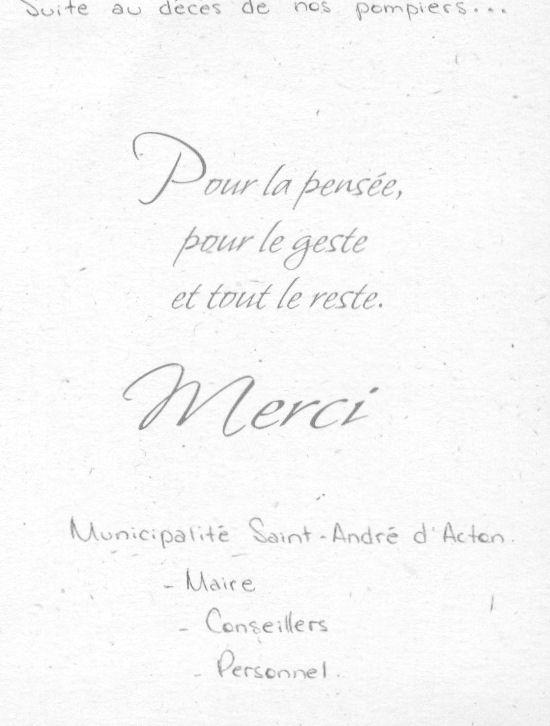 Suite au décès de nos pompiers...
Pour la pensée,
pour le geste
et tout le reste.
Merci
Municipalité Saint-André d'Acton.
- Maire
- Conseillers
- Personnel.